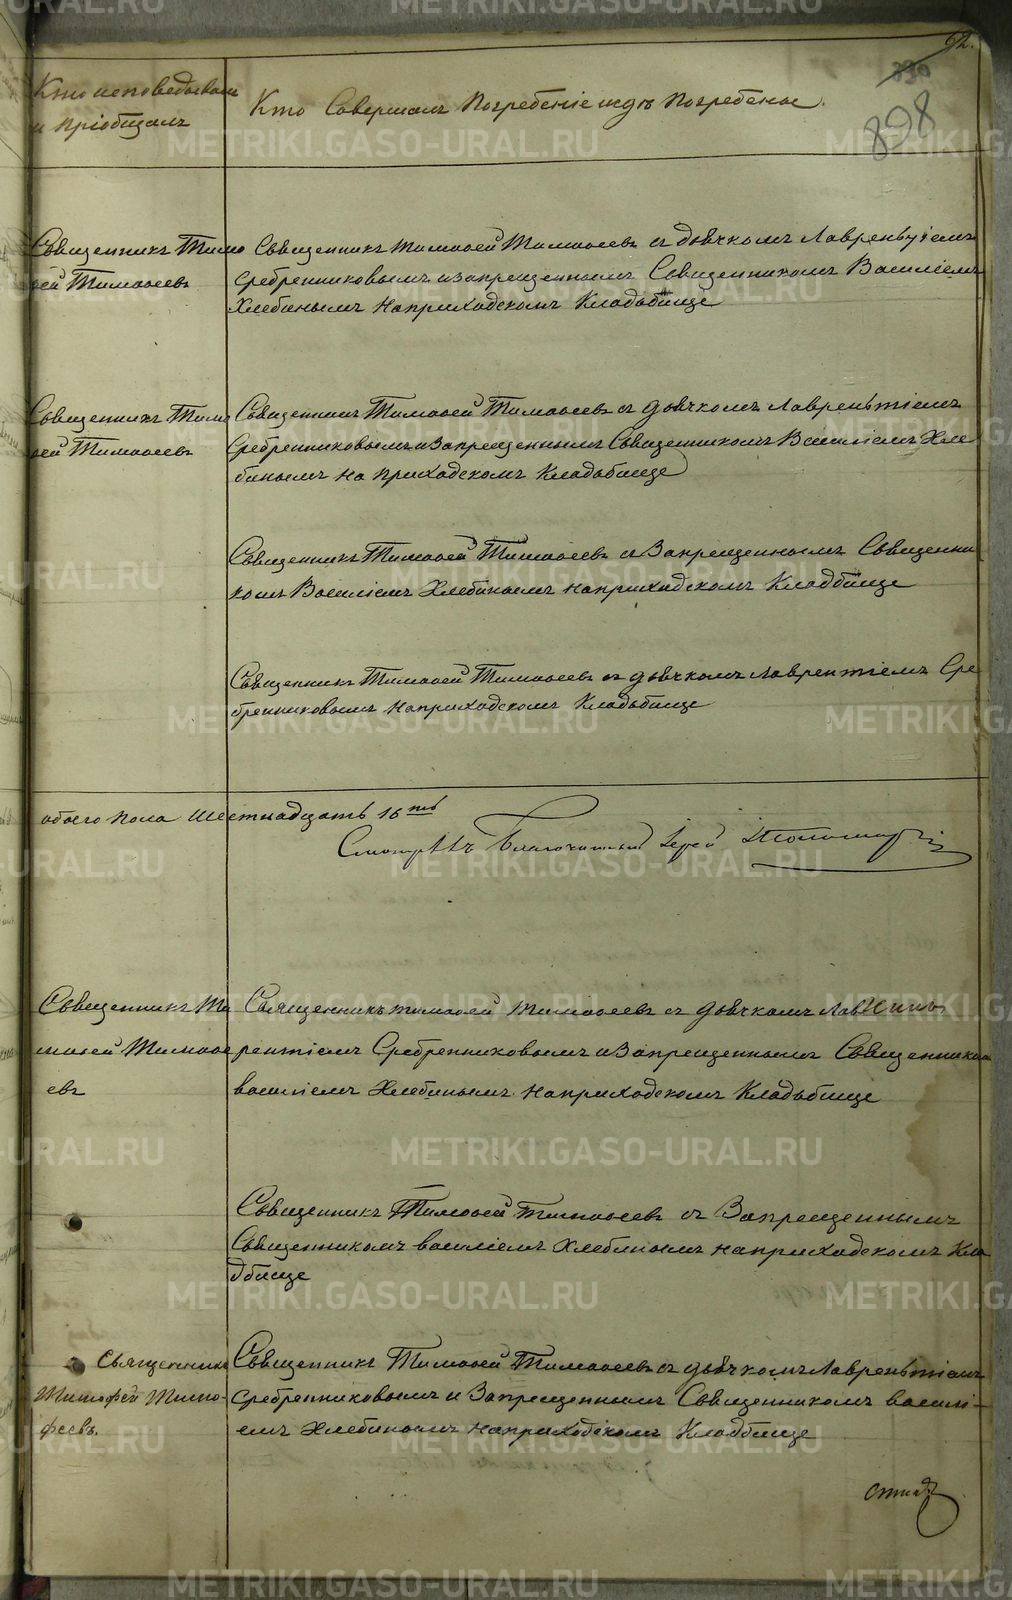 62.
830
898
Кто исповедывалъ
и пріобщалъ
Кто Совершалъ Погребеніе и гдѣ Погребены.
Священникъ Тимо
ѳей Тимоѳеевъ
Священникъ Тимоѳей Тимоѳеевъ съ дьячкомъ Лаврентіемъ
Сребренниковымъ и запрещеннымъ Священникомъ Василіемъ
Хлебинымъ на приходскомъ Кладьбище
Священникъ Тимо
ѳей Тимоѳеевъ
Священникъ Тимоѳей Тимоѳеевъ съ дьячкомъ Лаврентьіемъ
Сребренниковымъ и Запрещеннымъ Священникомъ Василіемъ Хле
бинымъ на приходскомъ Кладьбище
Священникъ Тимоѳей Тимоѳеевъ съ Запрещеннымъ Священни
комъ Василіемъ Хлебинымъ на приходскомъ Кладбище
Священникъ Тимоѳей Тимоѳеевъ съ дьячкомъ Лаврентіемъ Сре
бренниковымъ на приходскомъ Кладьбище
обоего пола Шестнадцать 16ть
Смотрѣлъ Благочинный Іерей
Священникъ Ти
моѳей Тимоѳе
евъ
Священникъ Тимоѳей Тимоѳеевъ съ дьячкомъ Лав
рентіемъ Сребренниковымъ и Запрещеннымъ Священником
василіемъ Хлебинымъ на приходскомъ Кладьбище
Священникъ Тимоѳей Тимоѳеевъ съ Запрещеннымъ
Священникомъ василіемъ Хлебинымъ на приходскомъ Кла
дбище
Священникъ
Тимофей Тимо-
феевъ.
Священникъ Тимоѳей Тимоѳеевъ съ дьячкомъ Лаврентьіемъ
Сребренниковымъ и Запрещеннымъ Священникомъ васили-
емъ Хлебинымъ на приходскомъ Кладбище
METRIKI.GASO-URAL.RU